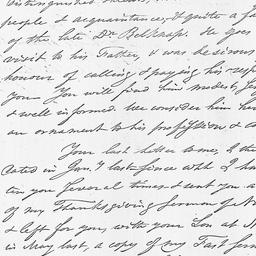 distinguished
people & acquaintance, & quite a fa
of the late Dr Belknap. He goes
visit to his Father, & was desirous
honour of calling & paying his resp
you. You will find him modest, 
& well informed. We consider him
an ornament to his profession & a
Your last letter to me, & the
dated in Jany. last since wch I ha
ten you several times & sent you a
of my Thanksgiving Sermon
& left for you, with your Son at N
in May last, a copy of my Fast Serm